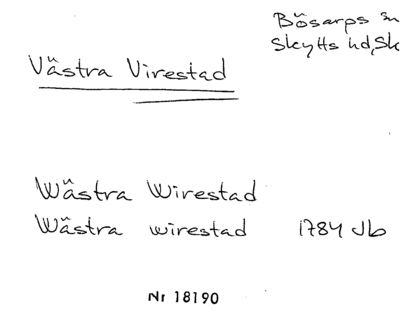 Bösarps sn
Skytts hd, Sk
Västra Virestad
Wästra Wirestad
Wästra wirestad 1784 Jb
Nr 18190